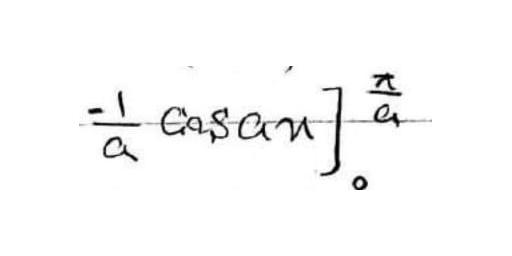 -1/a Cos ax]₀^{π/a}